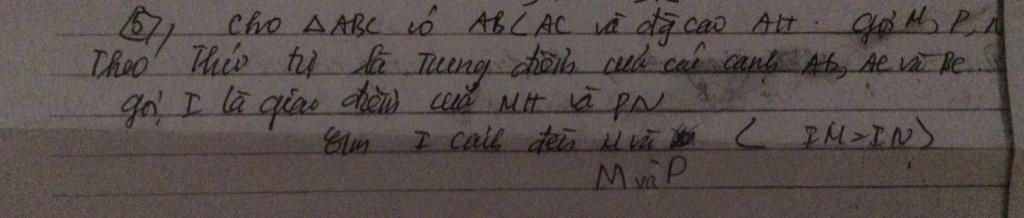 (5), Cho △ABC có AB < AC và đg cao AH. Gọi M, P, N
Theo Thứ tự là Trung điểm của các cạnh AB, AC và BC
gọi I là giao điểm của MH và PN
I cách đều M và
( IM = IN )
M và P